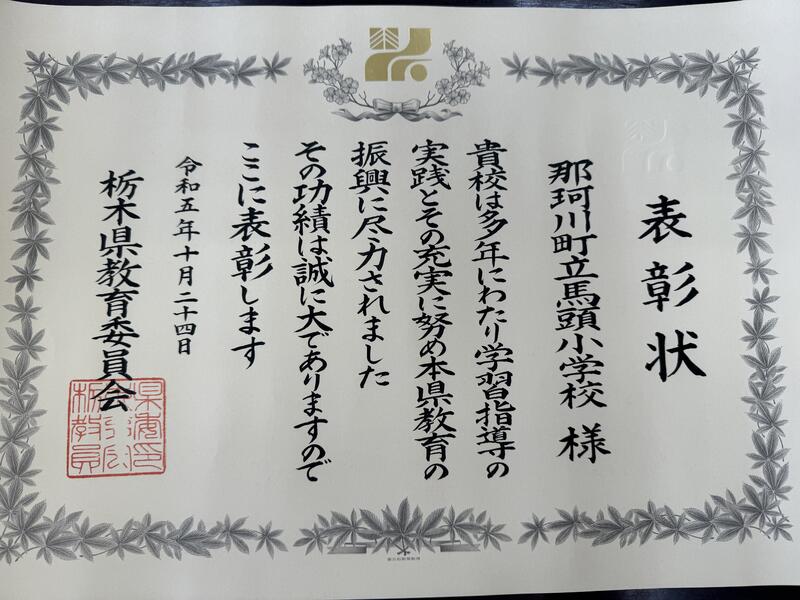 表彰状
那珂川町立馬頭小学校 様
貴校は多年にわたり学習指導の
実践とその充実に努め本県教育の
振興に尽力されました
その功績は誠に大でありますので
ここに表彰します
令和五年十月二十四日
栃木県教育委員会